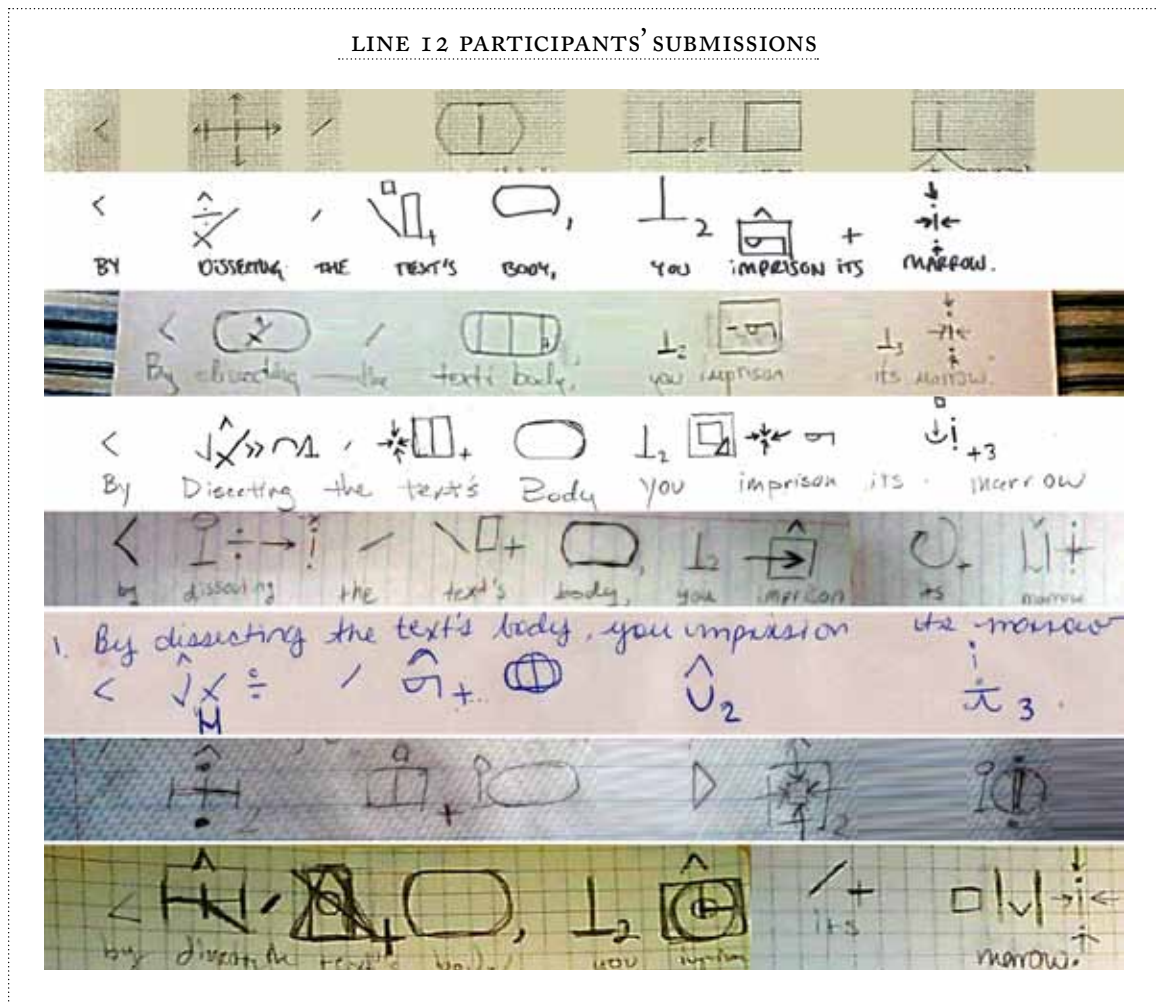 LINE 12 PARTICIPANTS' SUBMISSIONS
BY DISSECTING THE TEXT'S BODY, YOU imprison ITS MARROW.
By disecting the text's body, you imprison its marrow.
By Disecting the text's Body you imprison its marrow
by dissoving the text's body, you imprison its marrow
1. By dissecting the text's body, you impression its marrow
by the text's body, you its marrow.